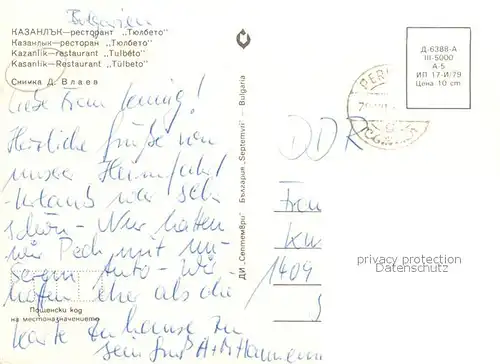 Bulgarien
КАЗАНЛЪК—ресторант „Тюлбето"
Казанлык—ресторан „Тюлбето"
Kazanlik—restaurant "Tulbéto"
Kasanlik—Restaurant "Tülbeto"
Снимка Д. Влаев
Liebe Frau
Herzliche Grüße von
unser Heimfahrt
Urlaub war sehr
schön - Nur hatten
wir Pech mit un-
serem Auto - Wir
hoffen eher als die
Karte zu hause zu
sein Gruß
Пощенски код
на местоназначението
ДИ „Септември" България „Septemvri" — Bulgaria
Д-6388-А
III-5000
А-5
ИП 17-И/79
Цена 10 cm
DDR
Frau
1409
privacy protection
Datenschutz